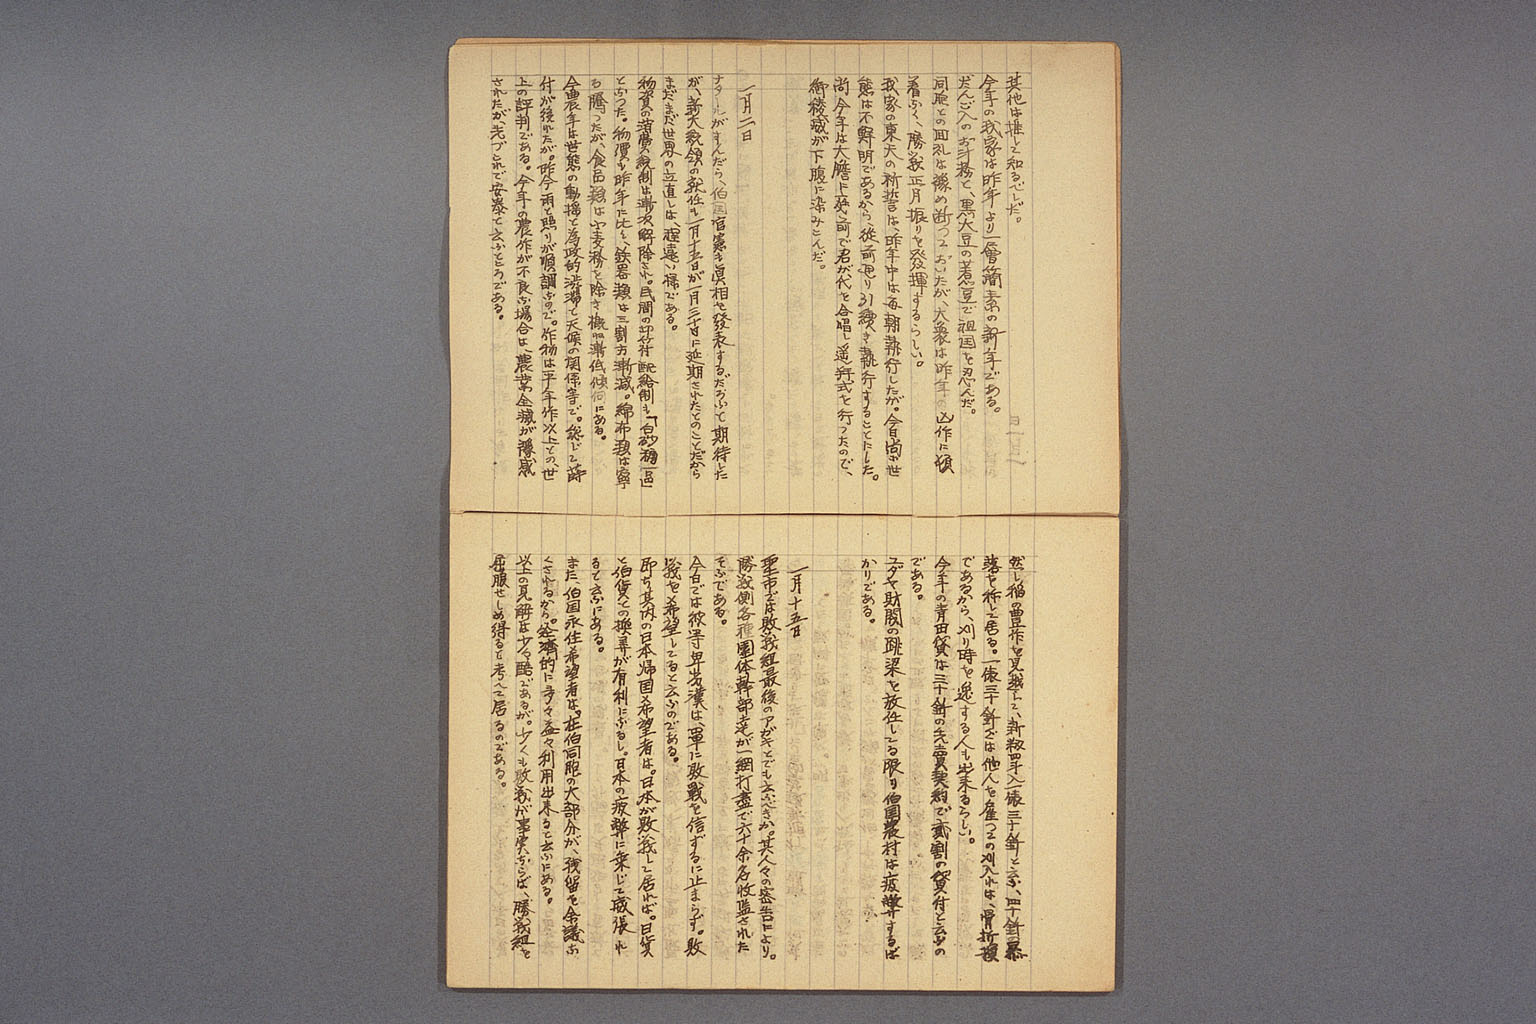 其他は推して知るべしだ。
今年の我家は昨年より一層簡素の新年である。
だんご入のお汁粉と、黒大豆の煮豆で祖国を忍んだ。
同胞との回礼は豫め断つておいたが、大衆は昨年の凶作に傾
着なく、勝戦正月振りを発揮するらしい。
我家の東天の祈誓は、昨年中は毎朝執行したが。今日尚ほ世
態は不鮮明であるから、従前通り引続き執行することにした。
尚今年は大膽に瓦前で君が代を合唱し遥拝式を行つたので、
御稜威が下腹に染みこんだ。
一月二日
ナタールがすんだら、伯国官憲も真相を發表するだらふと期待した
が、新大統領の就任も一月十五日が一月三十日に延期されたとのことだから
まだまだ世界の立直しは、程遠い様である。
物資の消費の統制は漸次解除され。民間の切符配給制も「白砂糖」一品
となつた。物價も昨年に比し、鉄器類は三割方漸減。綿布類は寧
ろ騰つたが、食品類は小麦粉を除き概ね漸低傾向にある。
今農年は世態の動揺と為政的渋滞と天候の関係等で。総じて蒔
付が後れたが。昨今雨と照りが順調なので。作物は平年作以上との、世
上の評判である。今年の農作が不良な場合は、農業全滅が豫感
されたが、先づこれで安泰と云ふところである。
然し稲の豊作を見越して、新籾四斗入一俵三十針と云ふ、四十針暴
落を称して居る。一俵三十針では他人を雇つての刈入れは、骨折損
であるから、刈り時を逸する人も出来るらしい。
今年の青田貸は三十針の先賣契約で貳割の貸付と云ふの
である。
ユダヤ財閥の跳梁を放任してる限り伯国農村は疲弊するば
かりである。
一月十五日
聖市では敗戦組最後のアガキとでも云ふべきか。其人々の密告により。
勝戦側各種團体幹部達が一網打盡で六十余名収監された
そふである。
今日では彼等卑劣漢は、單に敗戦を信ずるに止まらず。敗
戦を希望してると云ふのである。
即ち其内の日本帰国希望者は。日本が敗戦して居れば。日貨
と伯貨との換算が有利になるし。日本の疲弊に乗じて威張れ
ると云ふにある。
また、伯国永住希望者は。在伯同胞の大部分が、残留を余儀な
くされるから。経済的に多々益々利用出来ると云ふにある。
以上の見解は少々酷であるが。少くも敗戦が事実ならば、勝戦組を
屈服せしめ得ると考へて居るのである。